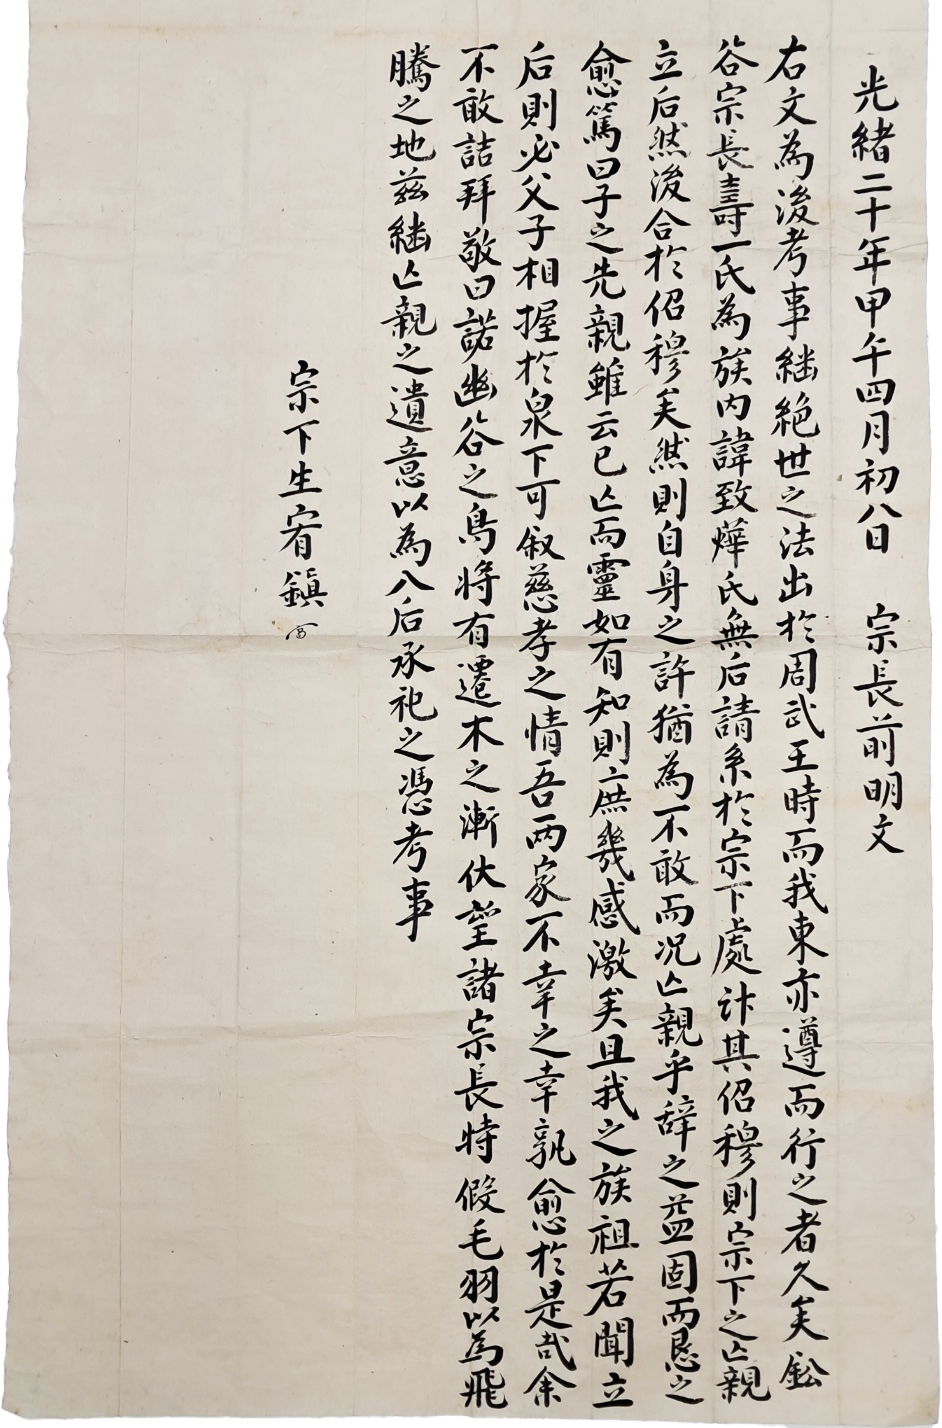 光緖二十年甲午四月初八日　宗長前明文
右文為後考事継絶世之法出於周武王時而我東亦遵而行之者久矣鈆
谷宗長壽一氏為族內諱致燁氏無后請系於宗下處計其佋穆則宗下之亡親
立后然後合於佋穆矣然則自身之許猶為不敢而况亡親乎辞之益固而恳之
愈篤曰子之先親雖云已亡而靈如有知則庶幾感激矣且我之族祖若聞立
后則必父子相握於泉下可叙慈孝之情吾兩家不幸之幸孰愈於是哉余
不敢詰拜敬曰諾幽谷之鳥将有遷木之漸伏望諸宗長特假毛羽以為飛
騰之地玆継亡親之遺意以為入后承祀之憑考事
宗下生宥鎭